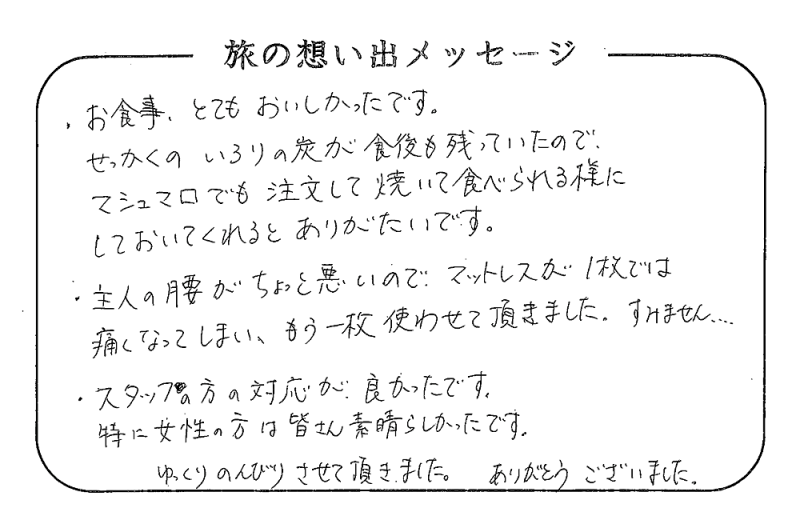 旅の想い出メッセージ
・お食事、とても おいしかったです。
せっかくの いろりの炭が 食後も残っていたので、
マシュマロでも 注文して 焼いて食べられる様に
しておいてくれると ありがたいです。
・主人の腰が ちょっと悪いので、マットレスが 1枚では
痛くなってしまい、もう一枚 使わせて頂きました。すみません…
・スタッフの方の対応が、良かったです。
特に女性の方は皆さん素晴らしかったです。
ゆっくりのんびり させて頂きました。 ありがとう ございました。